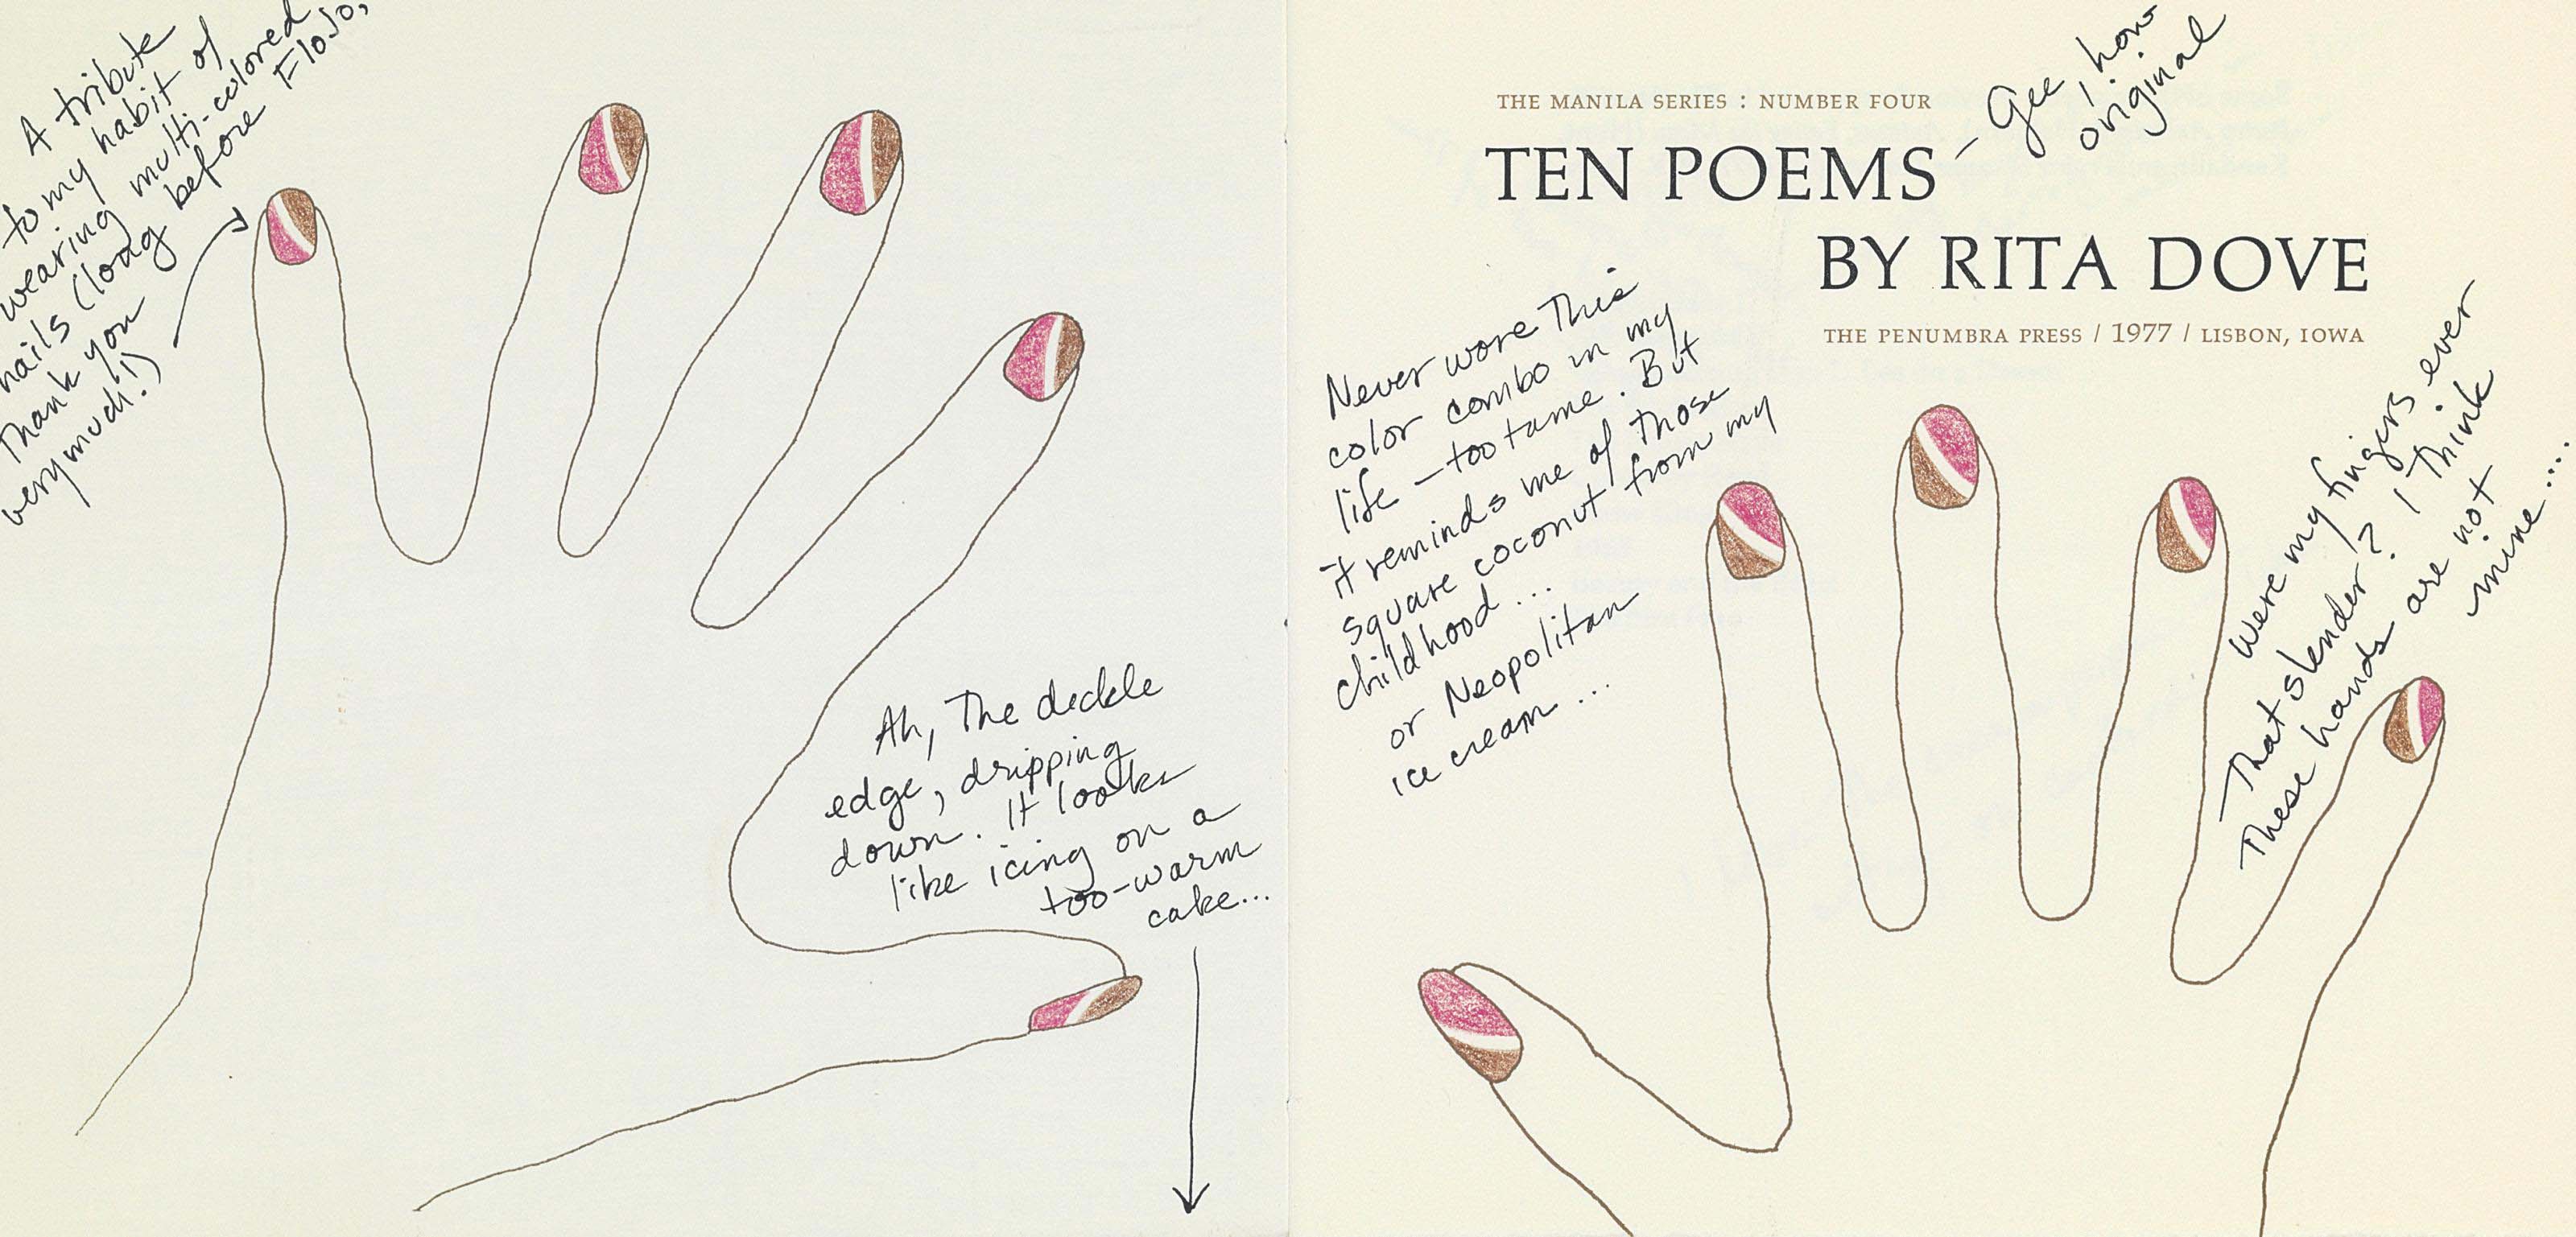 A tribute
to my habit of
wearing multi-colored
nails (long before FloJo,
Thank you
very much!)
Ah, The deckle
edge, dripping
down. It looks
like icing on a
too-warm
cake...
THE MANILA SERIES : NUMBER FOUR
TEN POEMS
– Gee, how
original
BY RITA DOVE
THE PENUMBRA PRESS / 1977 / LISBON, IOWA
Never wore This
color combo in my
life – too tame. But
it reminds me of Those
square coconut from my
childhood ...
or Neopolitan
ice cream ...
Were my fingers ever
That slender? I Think
These hands are not
mine....